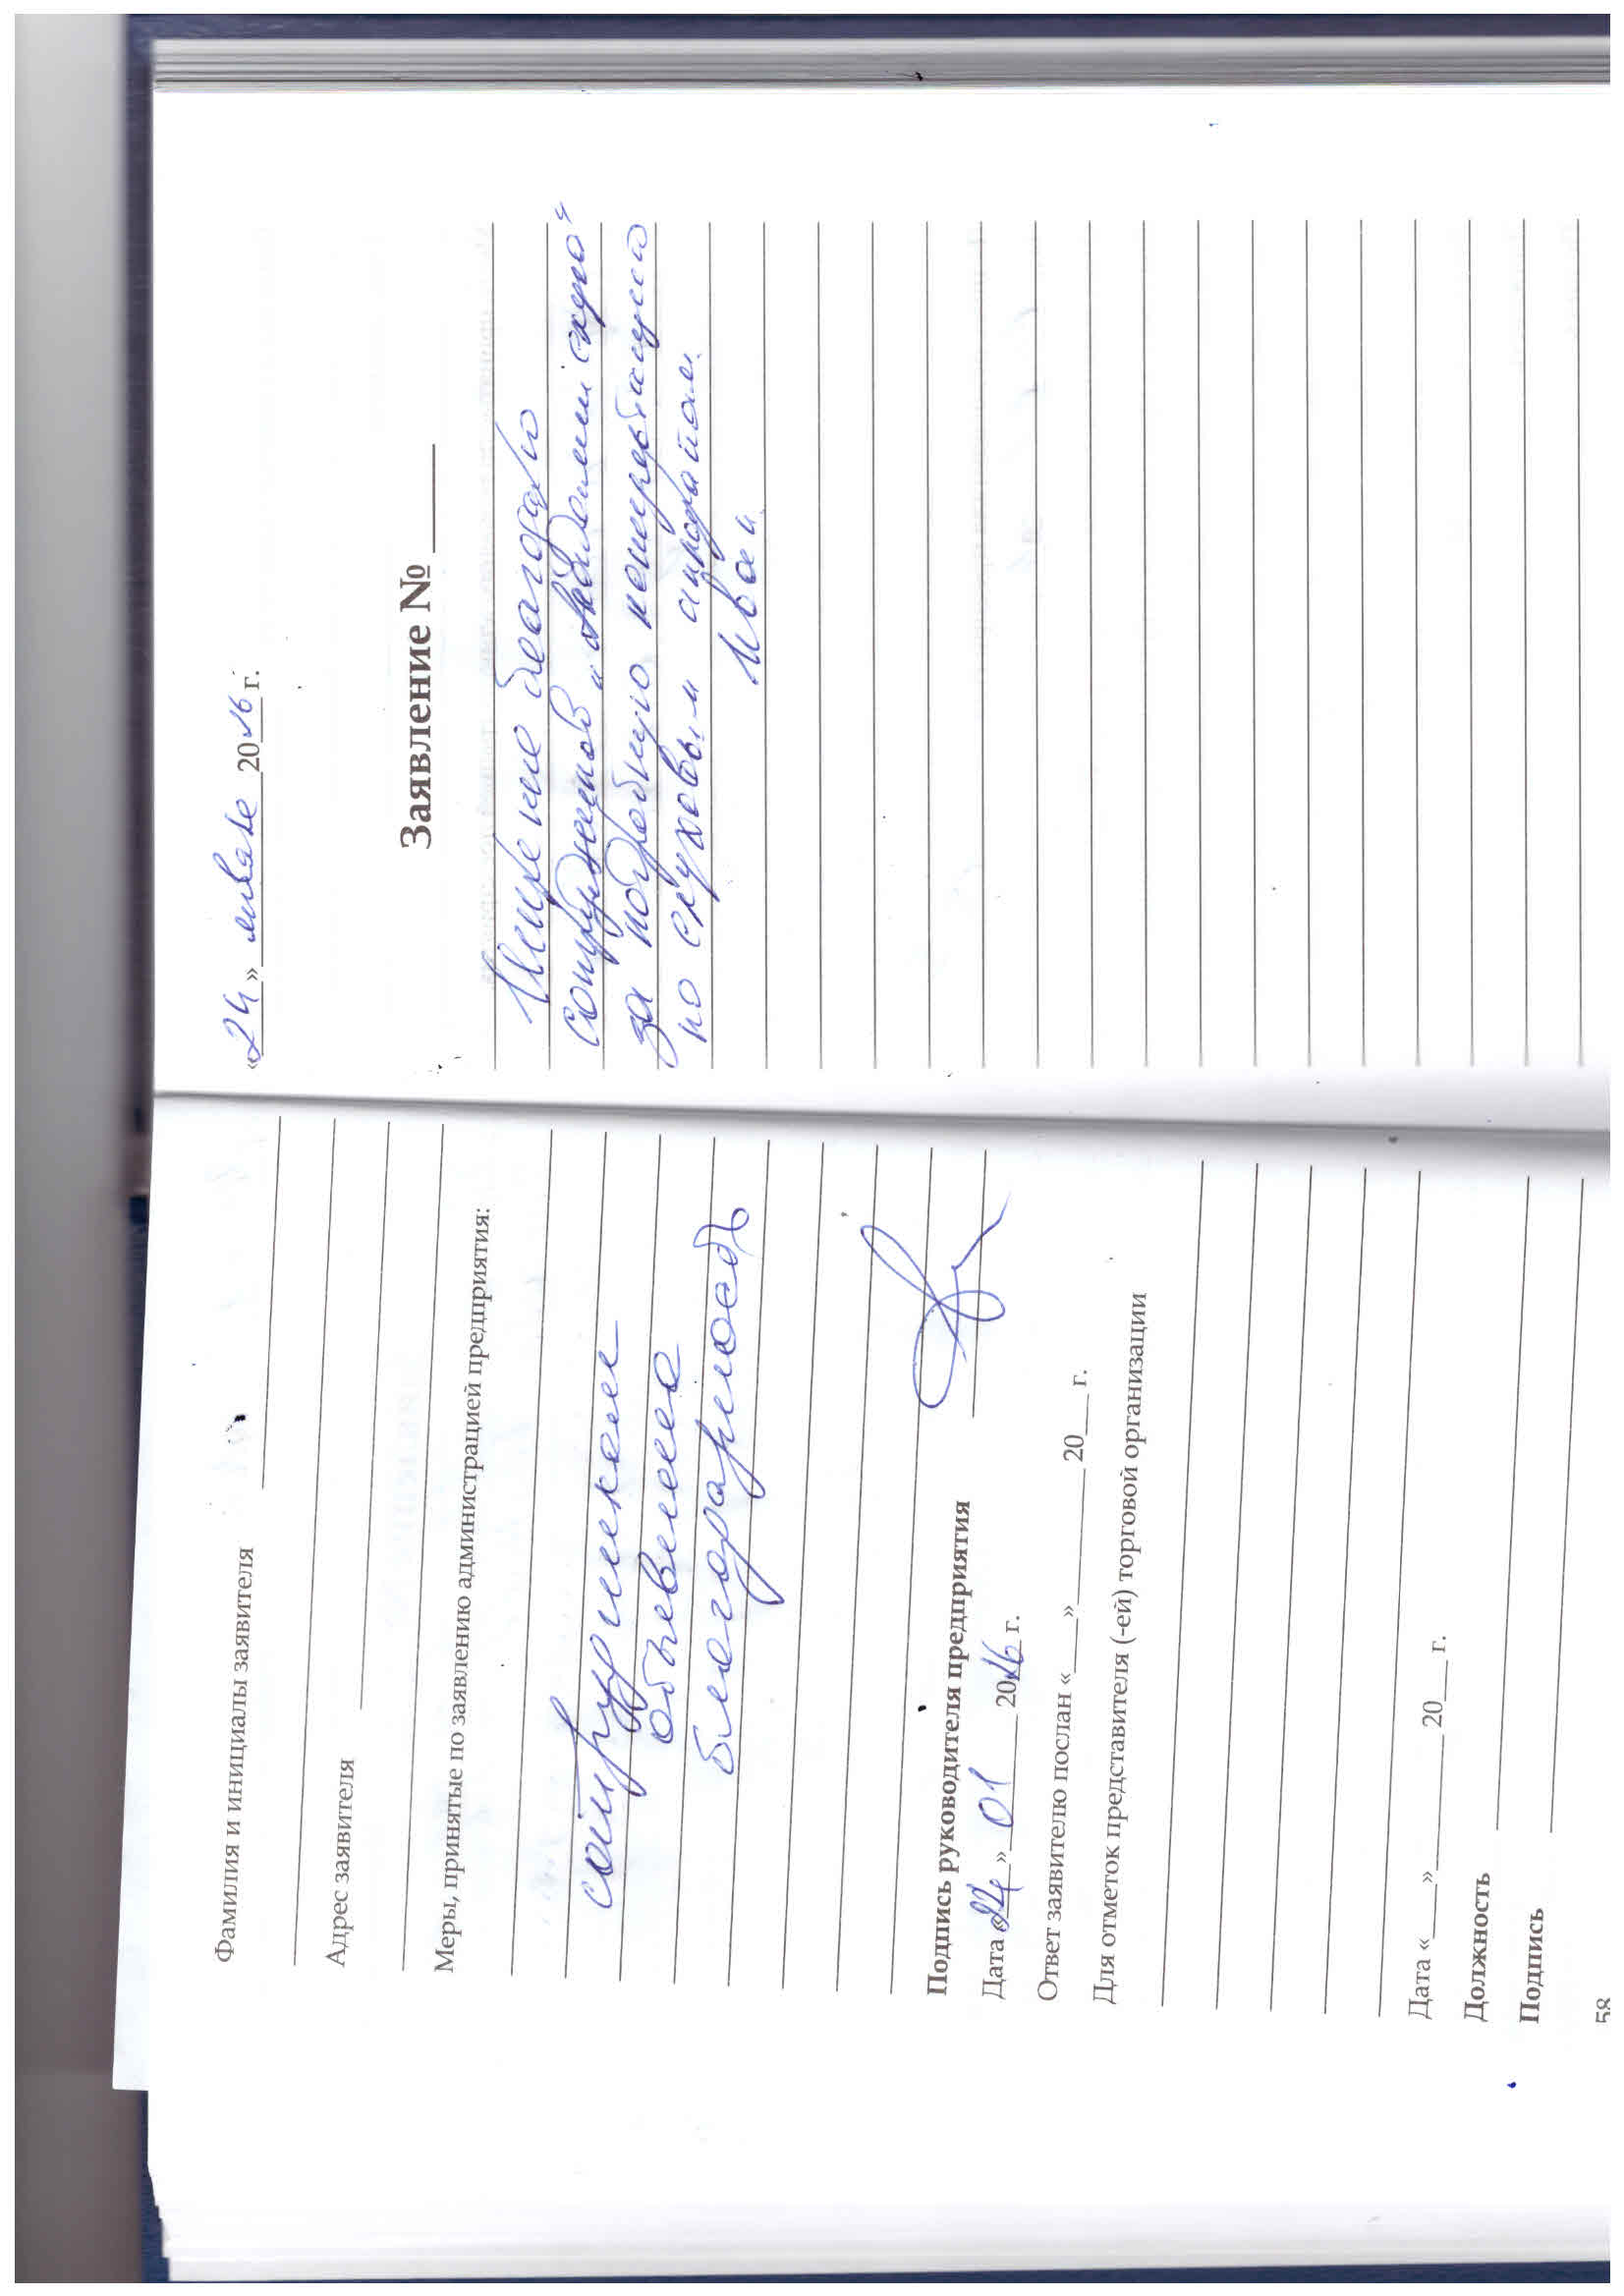 Фамилия и инициалы заявителя
Адрес заявителя
Меры, принятые по заявлению администрацией предприятия:
сотрудникам
объявлена
благодарность
Подпись руководителя предприятия
Дата «24» 01 2016 г.
Ответ заявителю послан «___» ______ 20__ г.
Для отметок представителя (-ей) торговой организации
Дата «___» ______ 20__ г.
Должность
Подпись
58
«24» января 2016 г.
Заявление № ____
Искренне благодарю
сотрудников „Академии слуха“
за подробную консультацию
по слуховым аппаратам.